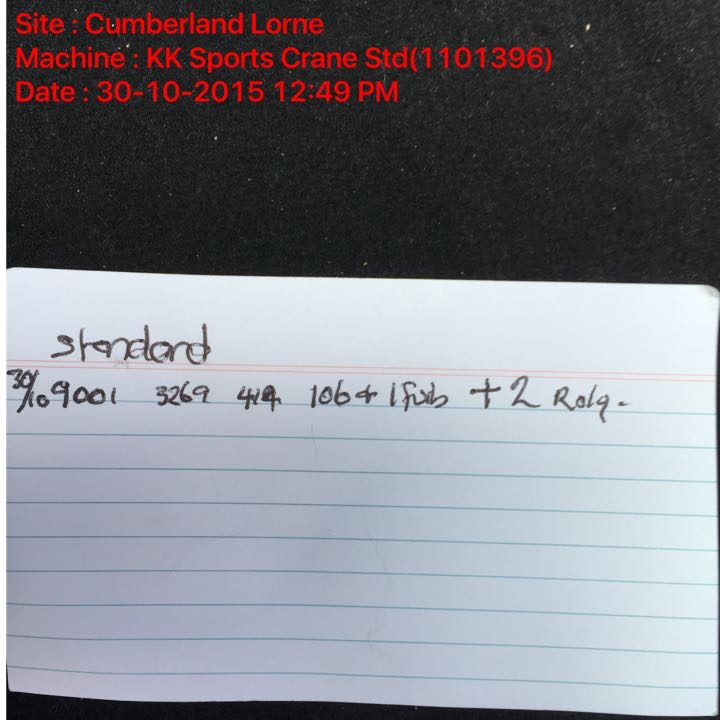 Site : Cumberland Lorne
Machine : KK Sports Crane Std(1101396)
Date : 30-10-2015 12:49 PM
Standard
30/10 9001 3269 414 106 + 1 + 2